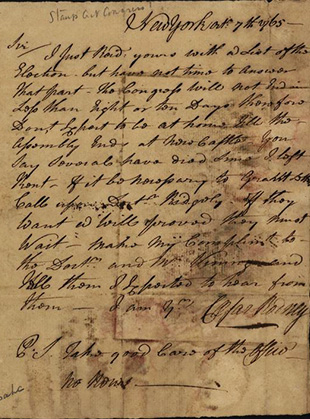 Stamp Act Congress
New York Octr. 7th 1765
Sir
I Just Recd. yours with a List of the
Election - but have not time to Answer
that part - The Congress will not End in
Less than Eight or ten Days therefore
Dont Expect to be at home till the
Assembly End at New Castle - You
Say Severals have died Since I left
Kent - If it be necessary to
Calls upon Ridgely - If they
want wills proved they must
Wait - make my Complim.ts to
the Doctr. and Mr. and
tell them I Expected to hear from
them - I am Yrs.
Caesar Rodney
P.S. Take good Care of the Office
no News